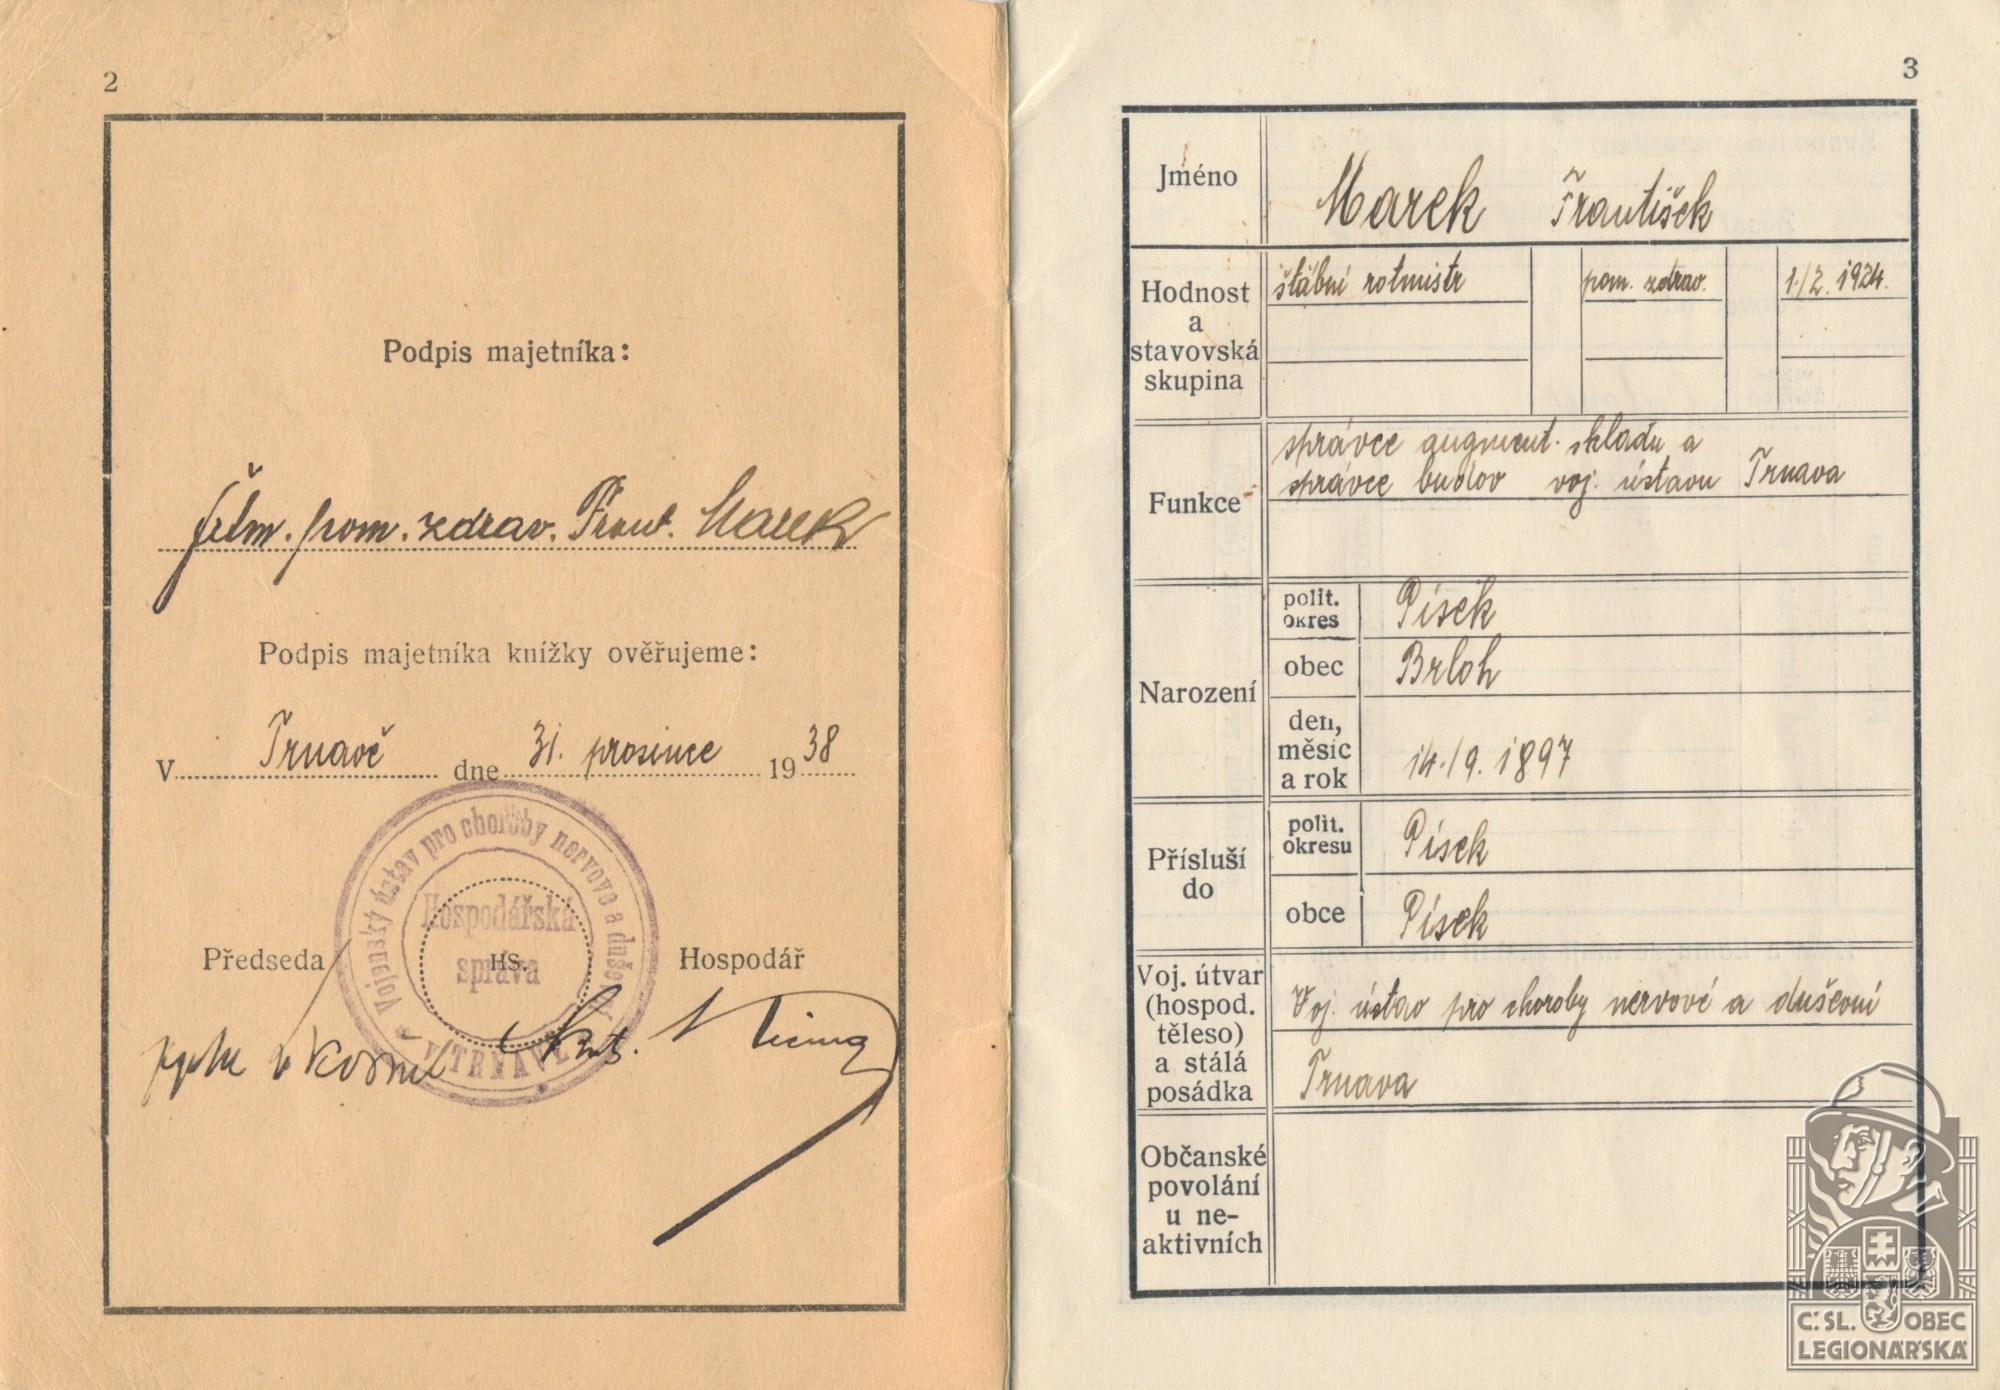 2
Podpis majetníka:
pom. zdrav. Frant. Marek
Podpis majetníka knížky ověřujeme:
V Trnavě dne 31. prosince 1938
Vojenský ústav pro choroby nervové a duševní
V TRNAVĚ
Hospodářská
správa
HS.
Předseda
Hospodář
3
Jméno
Marek František
Hodnost
a
stavovská
skupina
štábní rotmistr pom. zdrav. 1./2. 1924.
Funkce
správce augment. skladu a
správce budov voj. ústavu Trnava
Narození
polit.
okres
Písek
obec
Brloh
den,
měsíc
a rok
14./9. 1897
Přísluší
do
polit.
okresu
Písek
obce
Písek
Voj. útvar
(hospod.
těleso)
a stálá
posádka
Voj. ústav pro choroby nervové a duševní
Trnava
Občanské
povolání
u ne-
aktivních
Č. SL. OBEC
LEGIONÁŘSKÁ